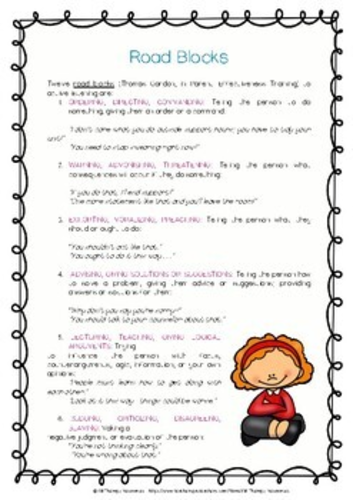 Road Blocks
Twelve road blocks (Thomas Gordon, Parent Effectiveness Training) to
active listening are:
1. ORDERING, DIRECTING, COMMANDING: Telling the person to do
something, giving them an order or a command.
"I don't care what you do outside support hours; you have to tidy your
unit!"
"You need to stop swearing right now!"
2. WARNING, ADMONISHING, THREATENING: Telling the person what
consequences will occur if they do something.
"If you do that,
"One more statement like that and you'll leave the room!"
3. EXHORTING, MORALISING, PREACHING: Telling the person what they
should or ought to do:
"You shouldn't act like that."
"You ought to do it this way....."
4. ADVISING, GIVING SOLUTIONS OR SUGGESTIONS: Telling the person how
to solve a problem, giving them advice or suggestions; providing
answers or solutions for them:
"Why don't you say you're sorry?"
"You should talk to your counsellor about that."
5. LECTURING, TEACHING, GIVING LOGICAL
ARGUMENTS: Trying
to influence the person with facts,
counterarguments, logic, information, or your own
opinions:
"People must learn how to get along with
each other."
"Look at it this way - things could be worse."
6. JUDGING, CRITICISING, DISAGREEING,
BLAMING: Making a
negative judgment or evaluation of the person:
"You're not thinking clearly."
"You're wrong about that."